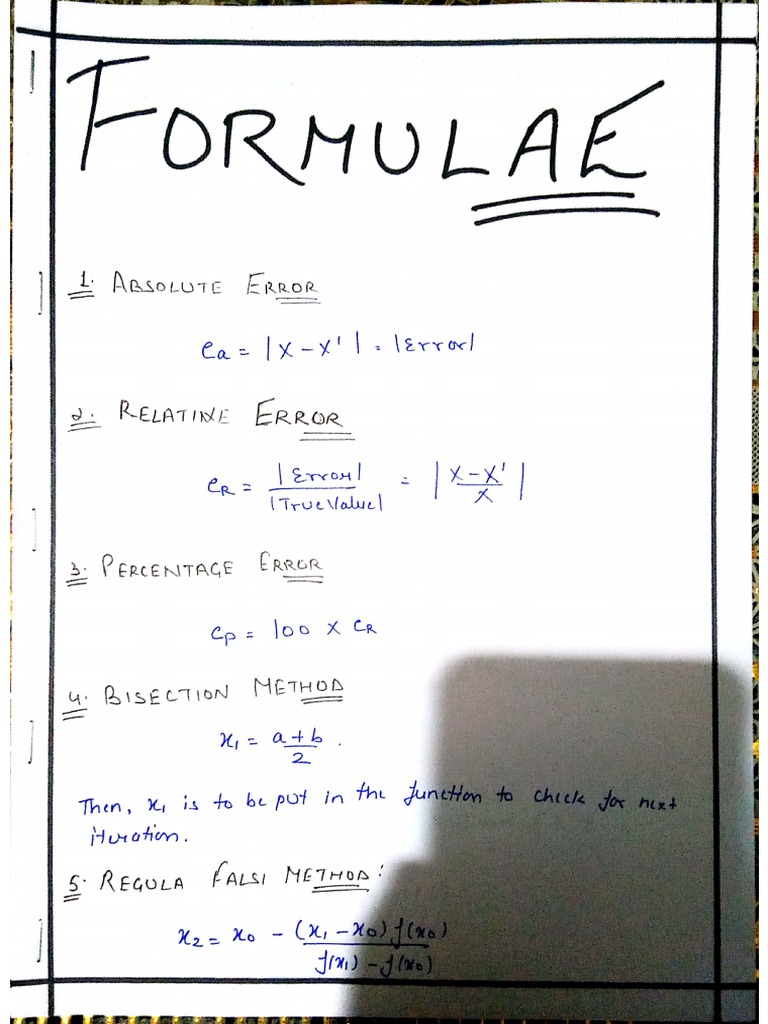 FORMULAE
1. ABSOLUTE ERROR
ea = |X - X'| = |Error|
2. RELATIVE ERROR
eR = |Error| / |True Value| = |X - X' / X|
3. PERCENTAGE ERROR
ep = 100 X eR
4. BISECTION METHOD
x₁ = a + b / 2 .
Then, x₁ is to be put in the function to check for next
iteration.
5. REGULA FALSI METHOD:
x₂ = x₀ - (x₁ - x₀) f(x₀) / f(x₁) - f(x₀)